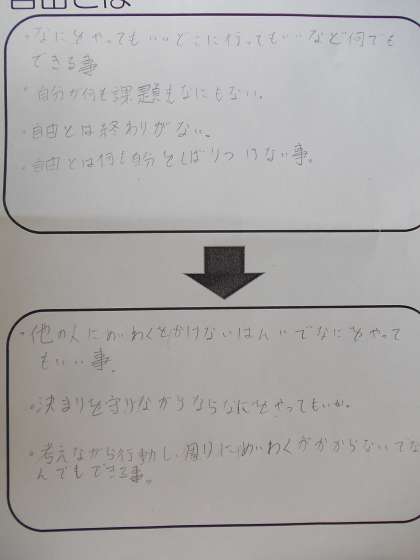 自由とは
・なにをやってもいいどこに行ってもいいなど何でも
できる事
・自分が何も課題もなにもない。
・自由とは終わりがない。
・自由とは何も自分をしばりつけない事。
・他の人にめいわくをかけないはんいでなにをやって
もいい事。
・決まりを守りながらならなにをやってもいい。
・考えながら行動し、周りにめいわくがかからないでな
んでもできる事。